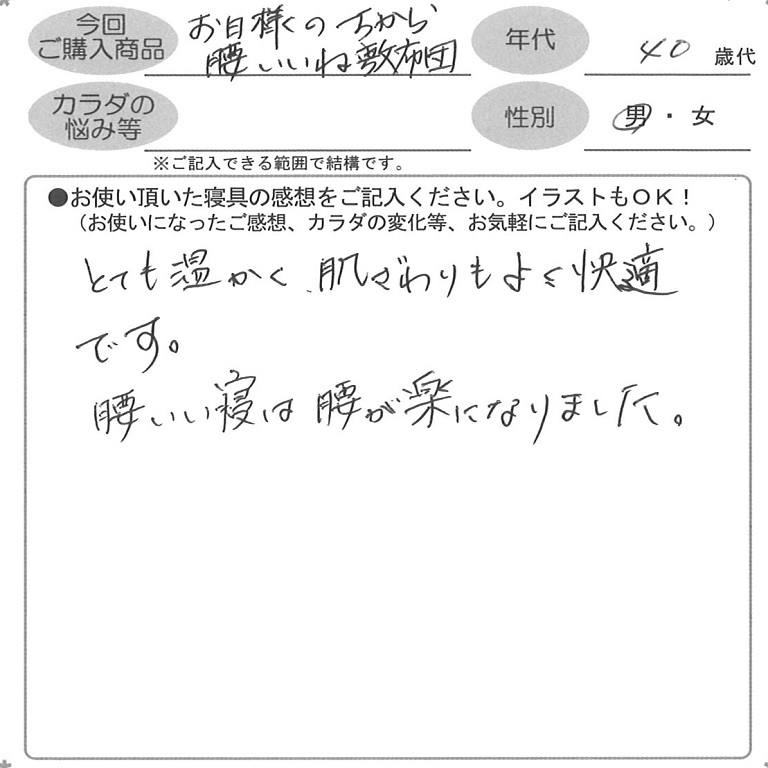 今回
ご購入商品
お日様のちから
腰いいね敷布団
年代
40 歳代
カラダの
悩み等
性別
男・女
※ご記入できる範囲で結構です。
●お使い頂いた寝具の感想をご記入ください。イラストもOK！
（お使いになったご感想、カラダの変化等、お気軽にご記入ください。）
とても温かく 肌ざわりもよく快適
です。
腰いい寝は 腰が楽になりました。